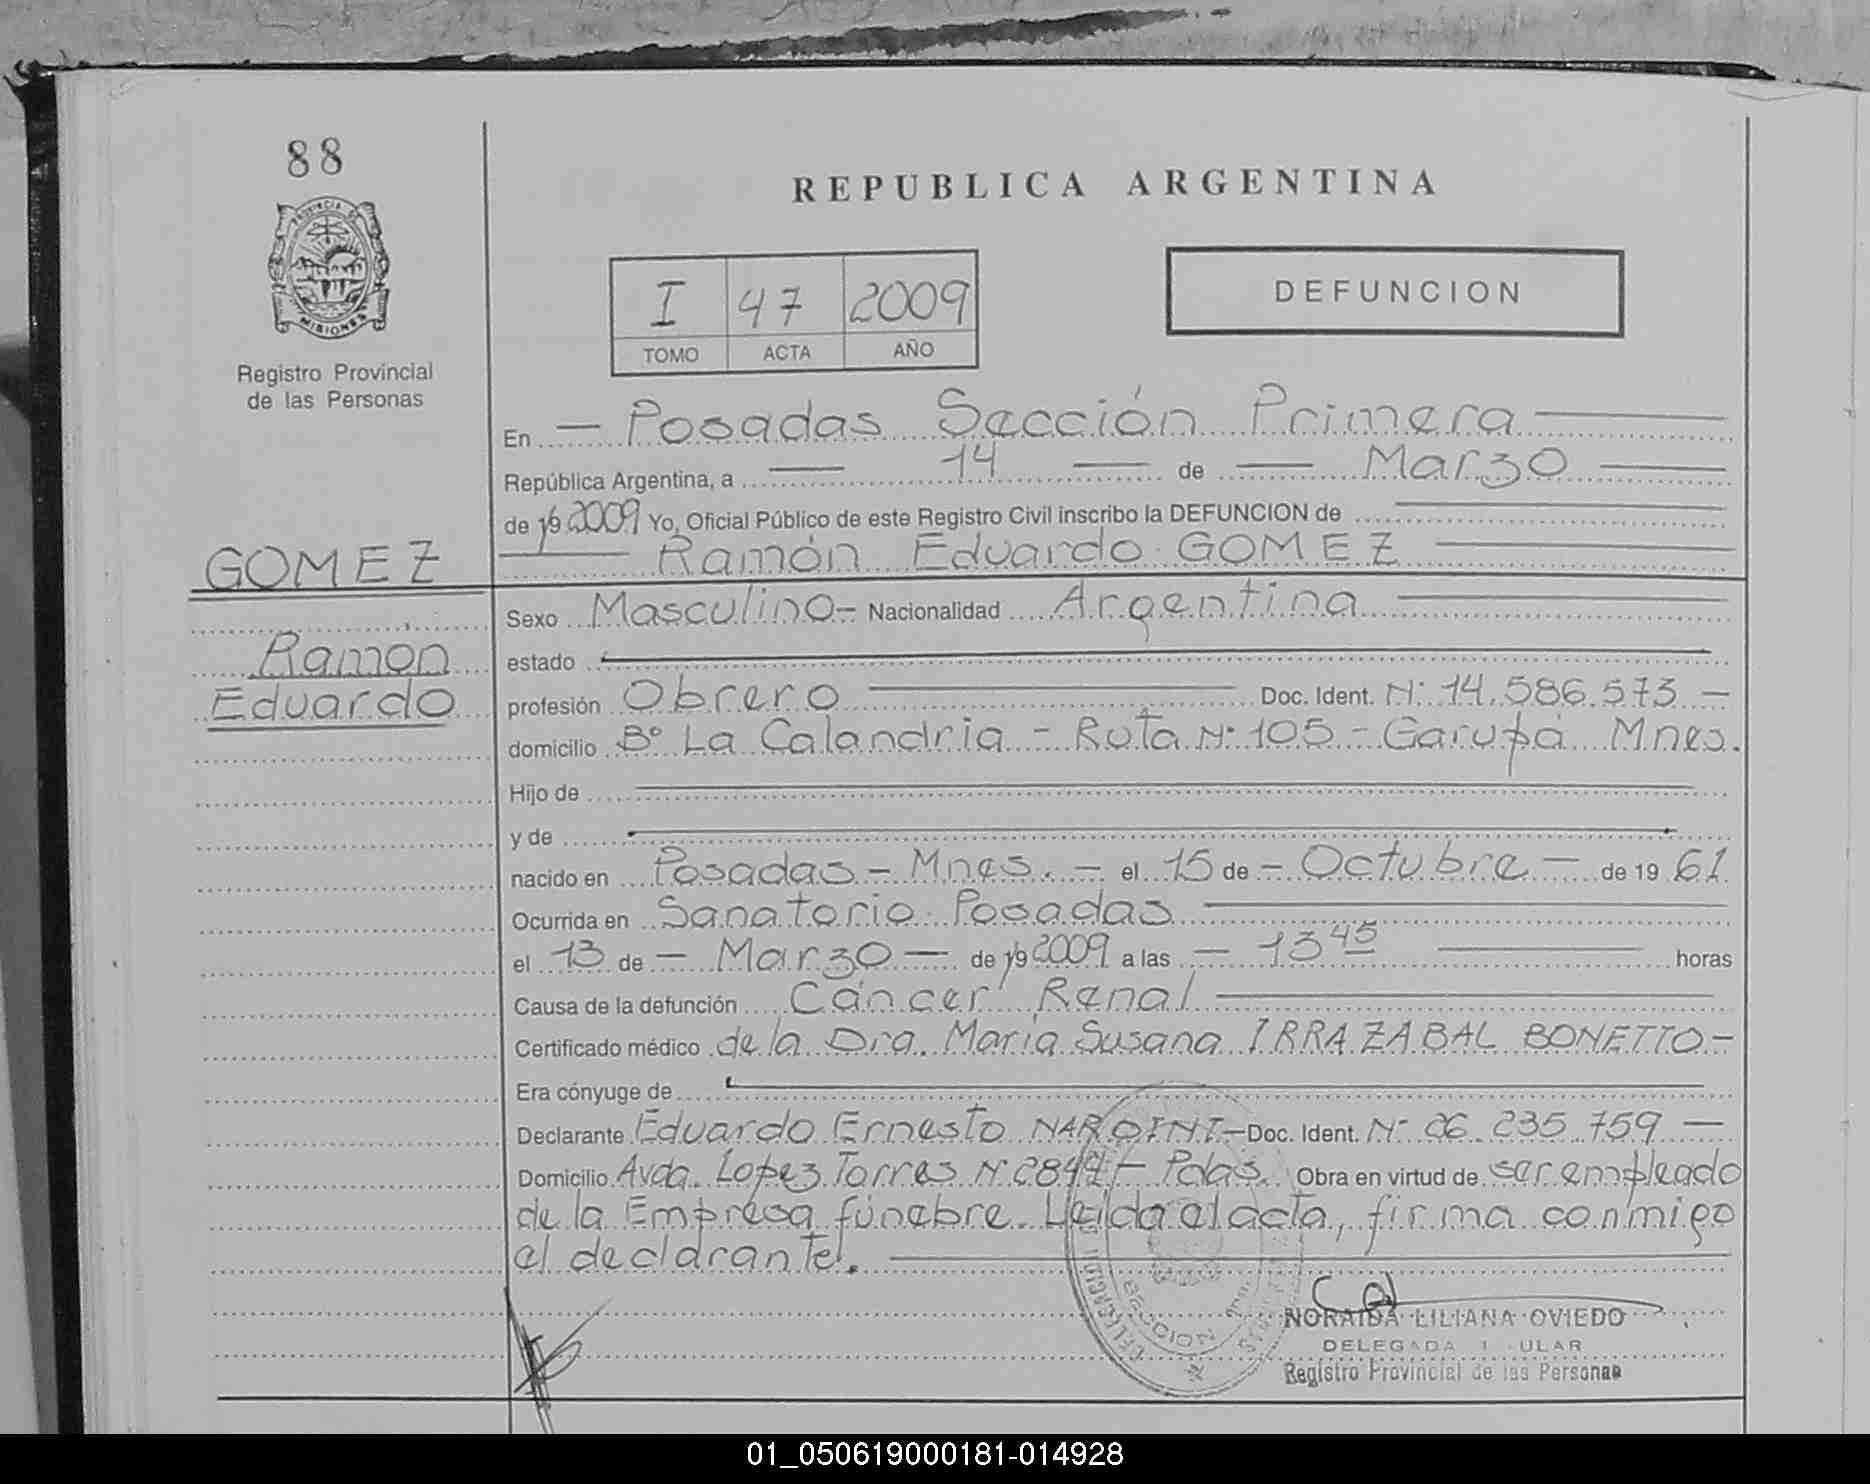 88
PROVINCIA DE
MISIONES
Registro Provincial
de las Personas
REPUBLICA ARGENTINA
I 47 2009
TOMO ACTA AÑO
DEFUNCION
En Posadas Sección Primera
República Argentina, a 14 de Marzo
de 19 2009 Yo, Oficial Público de este Registro Civil inscribo la DEFUNCION de
Ramón Eduardo GOMEZ
GOMEZ
Ramón
Eduardo
Sexo Masculino - Nacionalidad Argentina
estado
profesión Obrero Doc. Ident. Nº 14.586.573 -
domicilio Bº La Calandria - Ruta Nº 105 - Garupá Mnes.
Hijo de
y de
nacido en Posadas - Mnes. - el 15 de - Octubre - de 19 61
Ocurrida en Sanatorio Posadas
el 13 de - Marzo - de 19 2009 a las - 13 45 horas
Causa de la defunción Cáncer Renal
Certificado médico de la Dra. María Susana IRRAZABAL BONETTO -
Era cónyuge de
Declarante Eduardo Ernesto - Doc. Ident. Nº 26.235.759 -
Domicilio Avda. Lopez Torres Nº - Pdas. Obra en virtud de ser empleado
de la Empresa fúnebre. Leída el acta, firma conmigo
el declarante.
SECCION
NORAIDA LILIANA OVIEDO
DELEGADA
Registro Provincial de las Personas
01_050619000181-014928